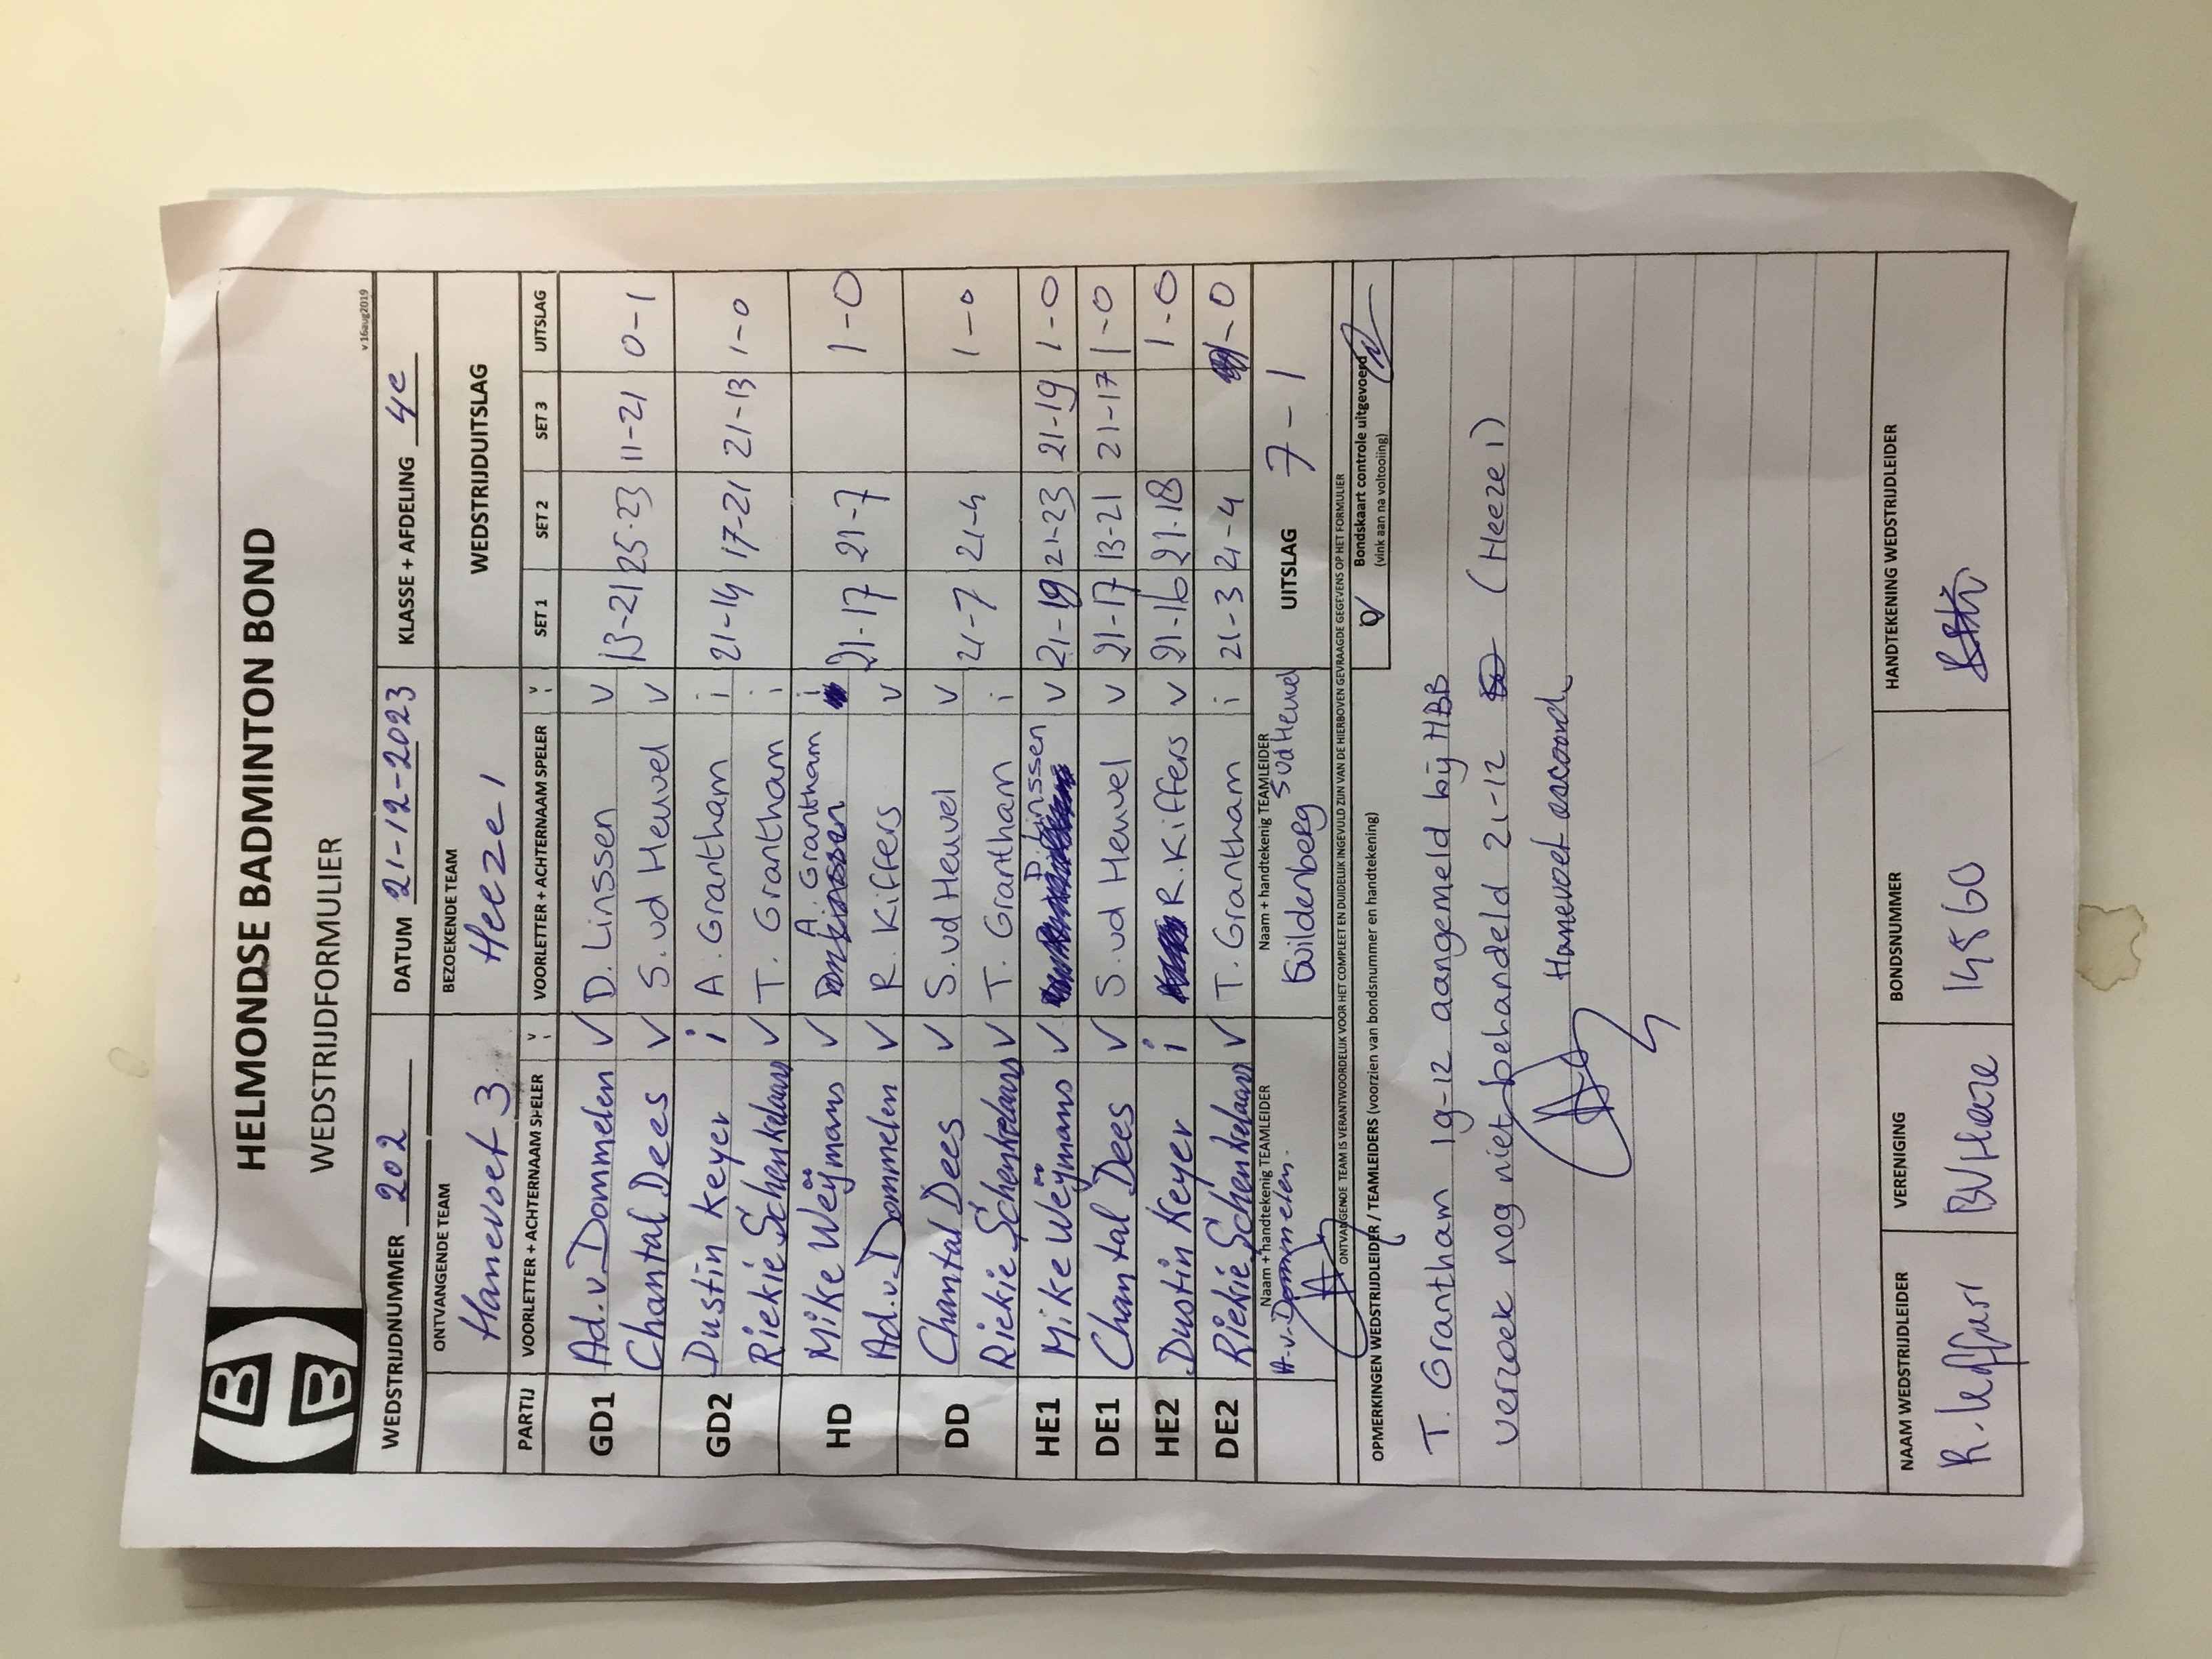 HELMONDSE BADMINTON BOND
WEDSTRIJDFORMULIER
v 16aug2019
WEDSTRIJDNUMMER 202 DATUM 21-12-2023 KLASSE + AFDELING 4e
ONTVANGENDE TEAM BEZOEKENDE TEAM WEDSTRIJDUITSLAG
Hanevoet 3 Heeze 1
PARTIJ VOORLETTER + ACHTERNAAM SPELER V I VOORLETTER + ACHTERNAAM SPELER V I SET 1 SET 2 SET 3 UITSLAG
GD1 Ad.v.Dommelen V D. Linssen V 13-21 25-23 11-21 0-1
Chantal Dees V S. vd Heuvel V
GD2 Dustin Keyer i A. Grantham i 21-14 17-21 21-13 1-0
Riekie Schenkelaars V T. Grantham i
HD Mike Weijmans V A. Grantham i 21-17 21-7 1-0
Ad.v.Dommelen V R. Kiffers V
DD Chantal Dees V S. vd Heuvel V 21-7 21-4 1-0
Riekie Schenkelaars V T. Grantham i
HE1 Mike Weijmans V D. Linssen V 21-19 21-23 21-19 1-0
DE1 Chantal Dees V S. vd Heuvel V 21-17 13-21 21-17 1-0
HE2 Dustin Keyer i R. Kiffers V 21-16 21-18 1-0
DE2 Riekie Schenkelaars V T. Grantham i 21-3 21-4 1-0
Naam + handtekenig TEAMLEIDER Naam + handtekenig TEAMLEIDER UITSLAG 7-1
A.v.Dommelen. SvdHeuvel
ONTVANGENDE TEAM IS VERANTWOORDELIJK VOOR HET COMPLEET EN DUIDELIJK INGEVULD ZIJN VAN DE HIERBOVEN GEVRAAGDE GEGEVENS OP HET FORMULIER
OPMERKINGEN WEDSTRIJDLEIDER / TEAMLEIDERS (voorzien van bondsnummer en handtekening) Bondskaart controle uitgevoerd
(vink aan na voltooiing)
T. Grantham 19-12 aangemeld bij HBB
verzoek nog niet behandeld 21-12 (Heeze 1)
Hanevoet accoord
NAAM WEDSTRIJDLEIDER VERENIGING BONDSNUMMER HANDTEKENING WEDSTRIJDLEIDER
BV Heeze